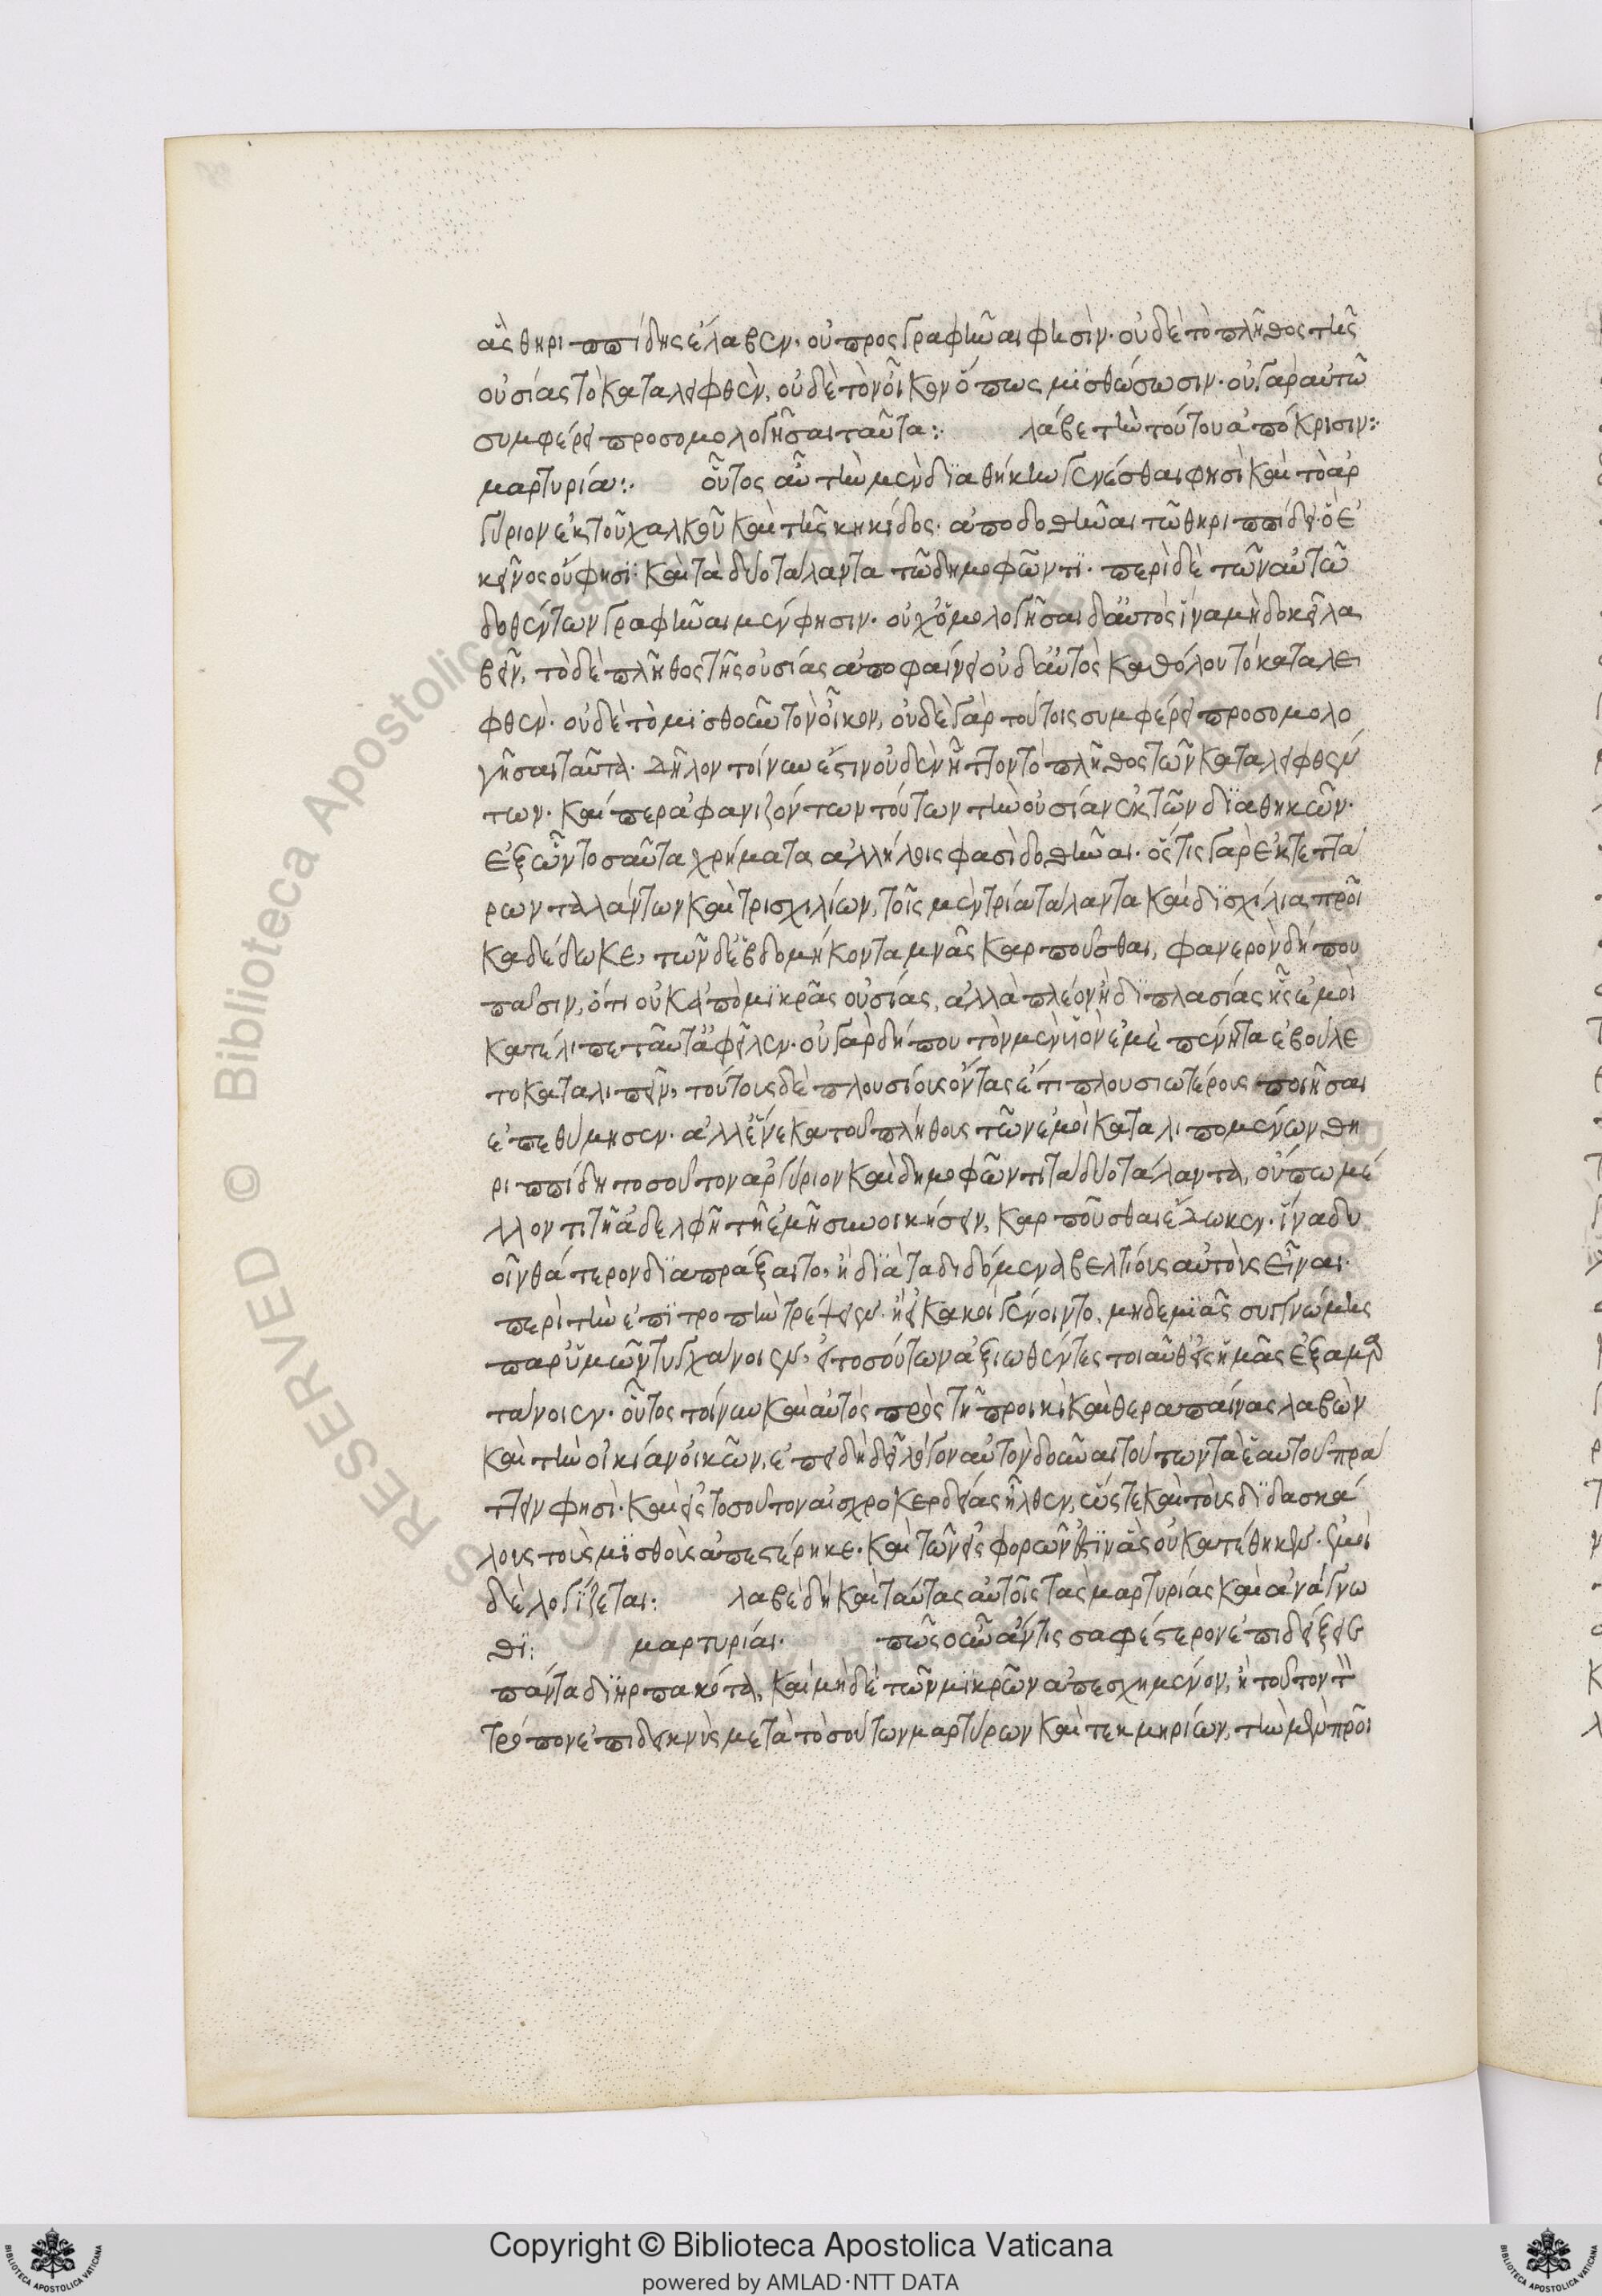 ἃς θηριππίδης ἔλαβεν, οὐ προσγραφῆναι φησὶν· οὐδὲ τὸ πλῆθος τῆς
οὐσίας τὸ καταλειφθὲν, οὐδὲ τὸν οἶκον ὅπως μϊσθώσωσιν· οὐ γὰρ αὐτῶ
συμφέρει προσομολογῆσαι ταῦτα:· λάβε τὴν τούτου ἀπόκρισιν:·
μαρτυρία:· οὗτος αὖ τὴν μὲν δϊαθήκην γενέσθαι φησὶ καὶ τὸ ἀρ
γύριον ἐκ τοῦ χαλκοῦ καὶ τῆς κηκίδος· ἀποδοθῆναι τῶ θηριππίδει· ὃ ἐ
κεῖνος οὔ φησϊ· καὶ τὰ δύο τάλαντα τῶ δημοφῶντϊ· περὶ δὲ τῶν αὐτῶ
δοθέντων γραφῆναι μέν φησιν· οὐχ ὁμολογῆσαι δ' αὐτὸς ἵνα μὴ δοκεῖ λα
βεῖν, τὸ δὲ πλῆθος τῆς οὐσίας ἀποφαίνει οὐδ' αὐτὸς καθόλου τὸ καταλει
φθὲν· οὐδὲ τὸ μϊσθοῦν τὸν οἶκον, οὐδὲ γὰρ τούτοις συμφέρει προσομολο
γῆσαι ταῦτα· Δῆλον τοίνυν ἐστιν οὐδὲν ἧττον τὸ πλῆθος τῶν καταλειφθέν
των· καίπερ ἀφανιζόντων τούτων τὴν οὐσίαν ἐκ τῶν δϊαθηκῶν·
ἐξ ὧν τοσαῦτα χρήματα ἀλλήλοις φασὶ δοθῆναι· ὅςτις γὰρ ἐκ τεττά
ρων ταλάντων καὶ τρισχιλίων, τοῖς μὲν τρία τάλαντα καὶ δϊσχίλια προῖ
κα δέδωκε, τῶν δ' ἑβδομήκοντα μνᾶς καρποῦσθαι, φανερὸν δή που
πᾶσιν, ὅτι οὐκ ἀπὸ μϊκρᾶς οὐσίας, ἀλλὰ πλέον ἢ δϊπλασίας ἧς ἐμοὶ
κατέλιπε ταῦτ' ἀφεῖλεν· οὐ γὰρ δή που τὸν μὲν υἱὸν ἐμὲ πένητα ἐβούλε
το καταλιπεῖν, τούτους δὲ πλουσίους ὄντας ἔτι πλουσιωτέρους ποιῆσαι
ἐπεθύμησεν· ἀλλ' ἕνεκα τοῦ πλήθους τῶν ἐμοὶ καταλιπομένων θη
ριππίδη τοσοῦτον ἀργύριον καὶ δημοφῶντι τὰ δύο τάλαντα, οὔπω μέ
λλοντι τῆ ἀδελφῆ τῆ ἐμῆ συνοικήσειν, καρποῦσθαι ἔδωκεν· ἵνα δυ
οῖν θάτερον δϊαπράξαιτο, ἢ δϊὰ τὰ διδόμενα βελτίους αὐτοὺς εἶναι·
περὶ τὴν ἐπϊτροπὴν τρέψειεν· ἢ εἰ κακοὶ γένοιντο, μηδεμϊᾶς συγγνώμης
παρ' ὑμῶν τυγχάνοιεν, εἰ τοσούτων ἀξιωθέντες τοιαῦθ' εἰς ἡμᾶς ἐξαμαρ
τάνοιεν· οὗτος τοίνυν καὶ αὐτὸς πρὸς τῆ προικὶ καὶ θεραπαίνας λαβὼν
καὶ τὴν οἰκίαν οἰκῶν, ἐπειδὴ δεῖ λόγον αὐτὸν δοῦναι τούτων τὰ ἑαυτοῦ πρά
ττειν φησὶ· καὶ εἰς τοσοῦτον αἰσχροκερδείας ἦλθεν, ὥςτε καὶ τοὺς δϊδασκά
λους τοὺς μϊσθοὺς ἀπεστέρηκε· καὶ τῶν εἰςφορῶν ἔστϊν ἃς οὐ κατέθηκεν· ἐμοὶ
δὲ λογίζεται: λαβὲ δὴ καὶ ταύτας αὐτοῖς τὰς μαρτυρίας καὶ ἀνάγνω
θϊ: μαρτυρίαι· πῶς οὖν ἄν τις σαφέστερον ἐπιδείξειε
πάντα δϊηρπακότα, καὶ μὴδὲ τῶν μϊκρῶν ἀπεσχημένον, ἢ τοῦτον τὸν
τρόπον ἐπιδεικνὺς μετὰ τοσούτων μαρτύρων καὶ τεκμηρίων, τὴν μὲν προῖ